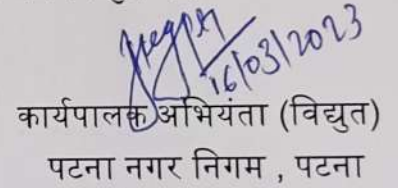 16/03/2023
कार्यपालक अभियंता (विद्युत)
पटना नगर निगम , पटना